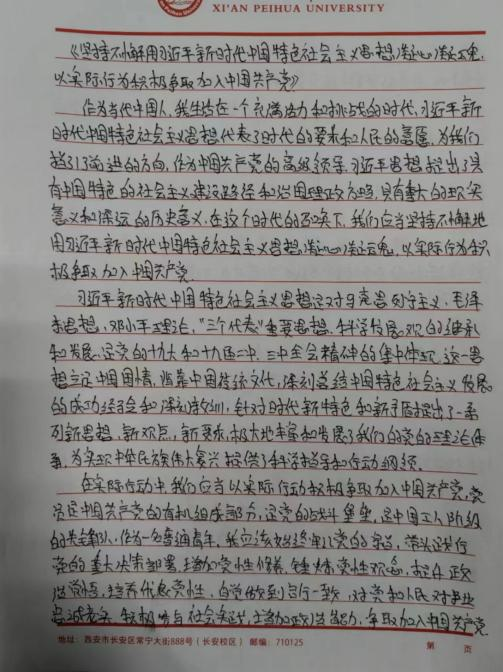 XI'AN PEIHUA UNIVERSITY
《坚持不懈用习近平新时代中国特色社会主义思想凝心凝魂,
以实际行为积极争取加入中国共产党》
作为当代中国人,我生活在一个充满活力和挑战的时代,习近平新
时代中国特色社会主义思想代表了时代的要求和人民的意愿,为我们
指引了前进的方向,作为中国共产党的高级领导,习近平思想提出了具
有中国特色的社会主义建设路径和治国理政方略,具有重大的现实
意义和深远的历史意义,在这个时代的召唤下,我们应当坚持不懈地
用习近平新时代中国特色社会主义思想凝心凝魂,以实际行为积
极争取加入中国共产党
习近平新时代中国特色社会主义思想是对马克思列宁主义,毛泽
东思想,邓小平理论,"三个代表"重要思想,科学发展观的继承
和发展,是党的十九大和十九届二中,三中全会精神的集中体现,这一思
想立足中国国情,崇中国传统文化,深刻总结中国特色社会主义发展
的成功经验和深刻教训,针对时代新特色和新提出了一系
列新思想,新观点,新要求,极大地丰富和发展了我们的党的理论体
系,为实现中华民族伟大复兴提供了科学指导和行动纲领。
在实际行动中,我们应当以实际行动积极争取加入中国共产党,党
员是中国共产党的有机组成部分,是党的战斗堡垒,是中国工人阶级
的先锋队,作为一名普通青年,我应该始终牢记党的宗旨,带头践行
党的重大决策部署,增加党性修养,锤炼党性观念,提升政
治觉悟,培养优良党性,自觉做到言行一致,对党和人民对事业
忠诚老实,积极参与社会实践,增加政治能力,争取加入中国共产党.
地址:西安市长安区常宁大街888号(长安校区) 邮编:710125 第 页